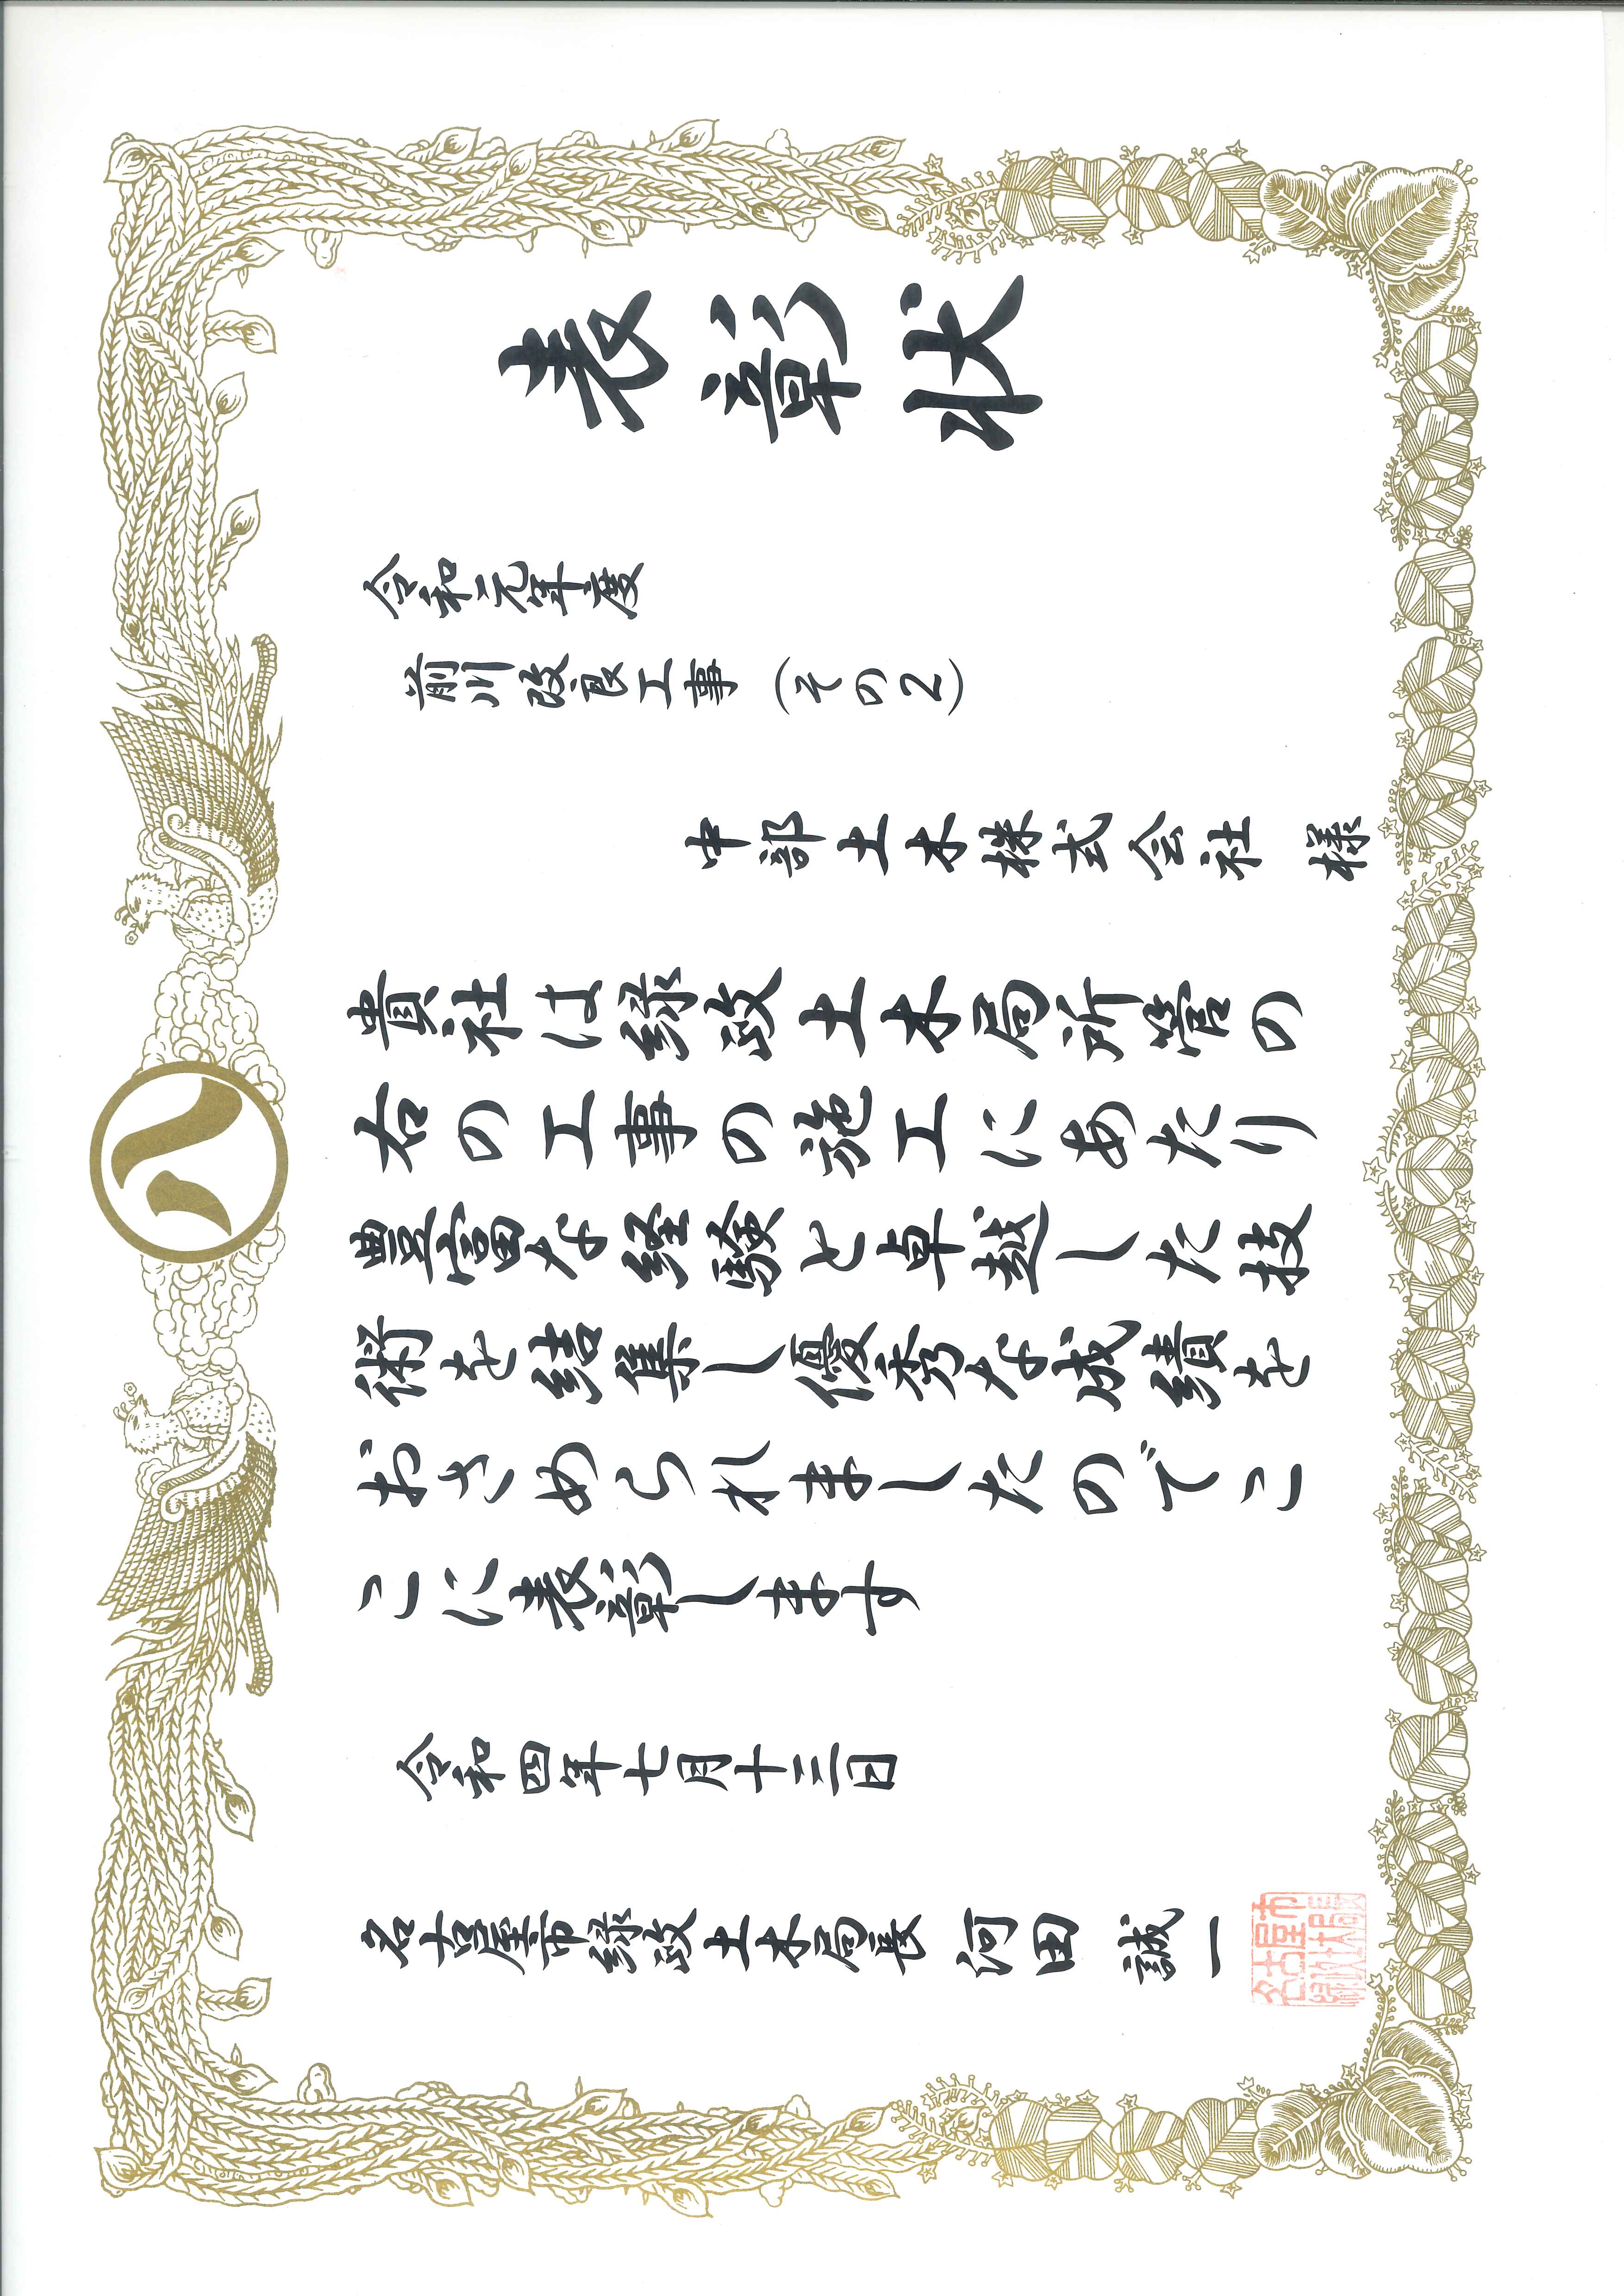 表彰状
令和元年度
前川改良工事(その2)
中部土木株式会社 様
貴社は緑政土木局所管の
右の工事の施工にあたり
豊富な経験と卓越した技
術を結集し優秀な成績を
おさめられましたのでこ
こに表彰します
令和四年七月十三日
名古屋市緑政土木局長 河田 誠一